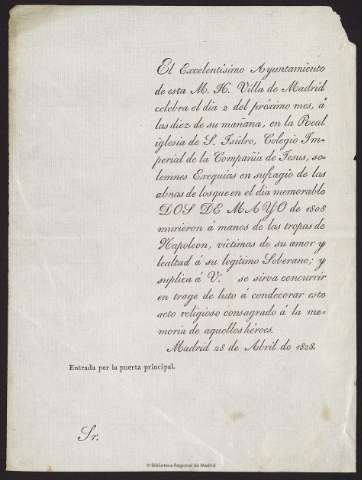 El Excelentísimo Ayuntamiento
de esta M. H. Villa de Madrid
celebra el dia 2 del próximo mes, á
las diez de su mañana, en la Real
iglesia de S. Isidro, Colegio Im-
perial de la Compañía de Jesus, so-
lemnes Exequias en sufragio de las
almas de los que en el dia memorable
DOS DE MAYO de 1808
murieron á manos de las tropas de
Napoleon, víctimas de su amor y
lealtad á su legítimo Soberano; y
suplica á V. se sirva concurrir
en trage de luto á condecorar este
acto religioso consagrado á la me-
moria de aquellos héroes.
Madrid 28 de Abril de 1828.
Entrada por la puerta principal.
Sr.
© Biblioteca Regional de Madrid